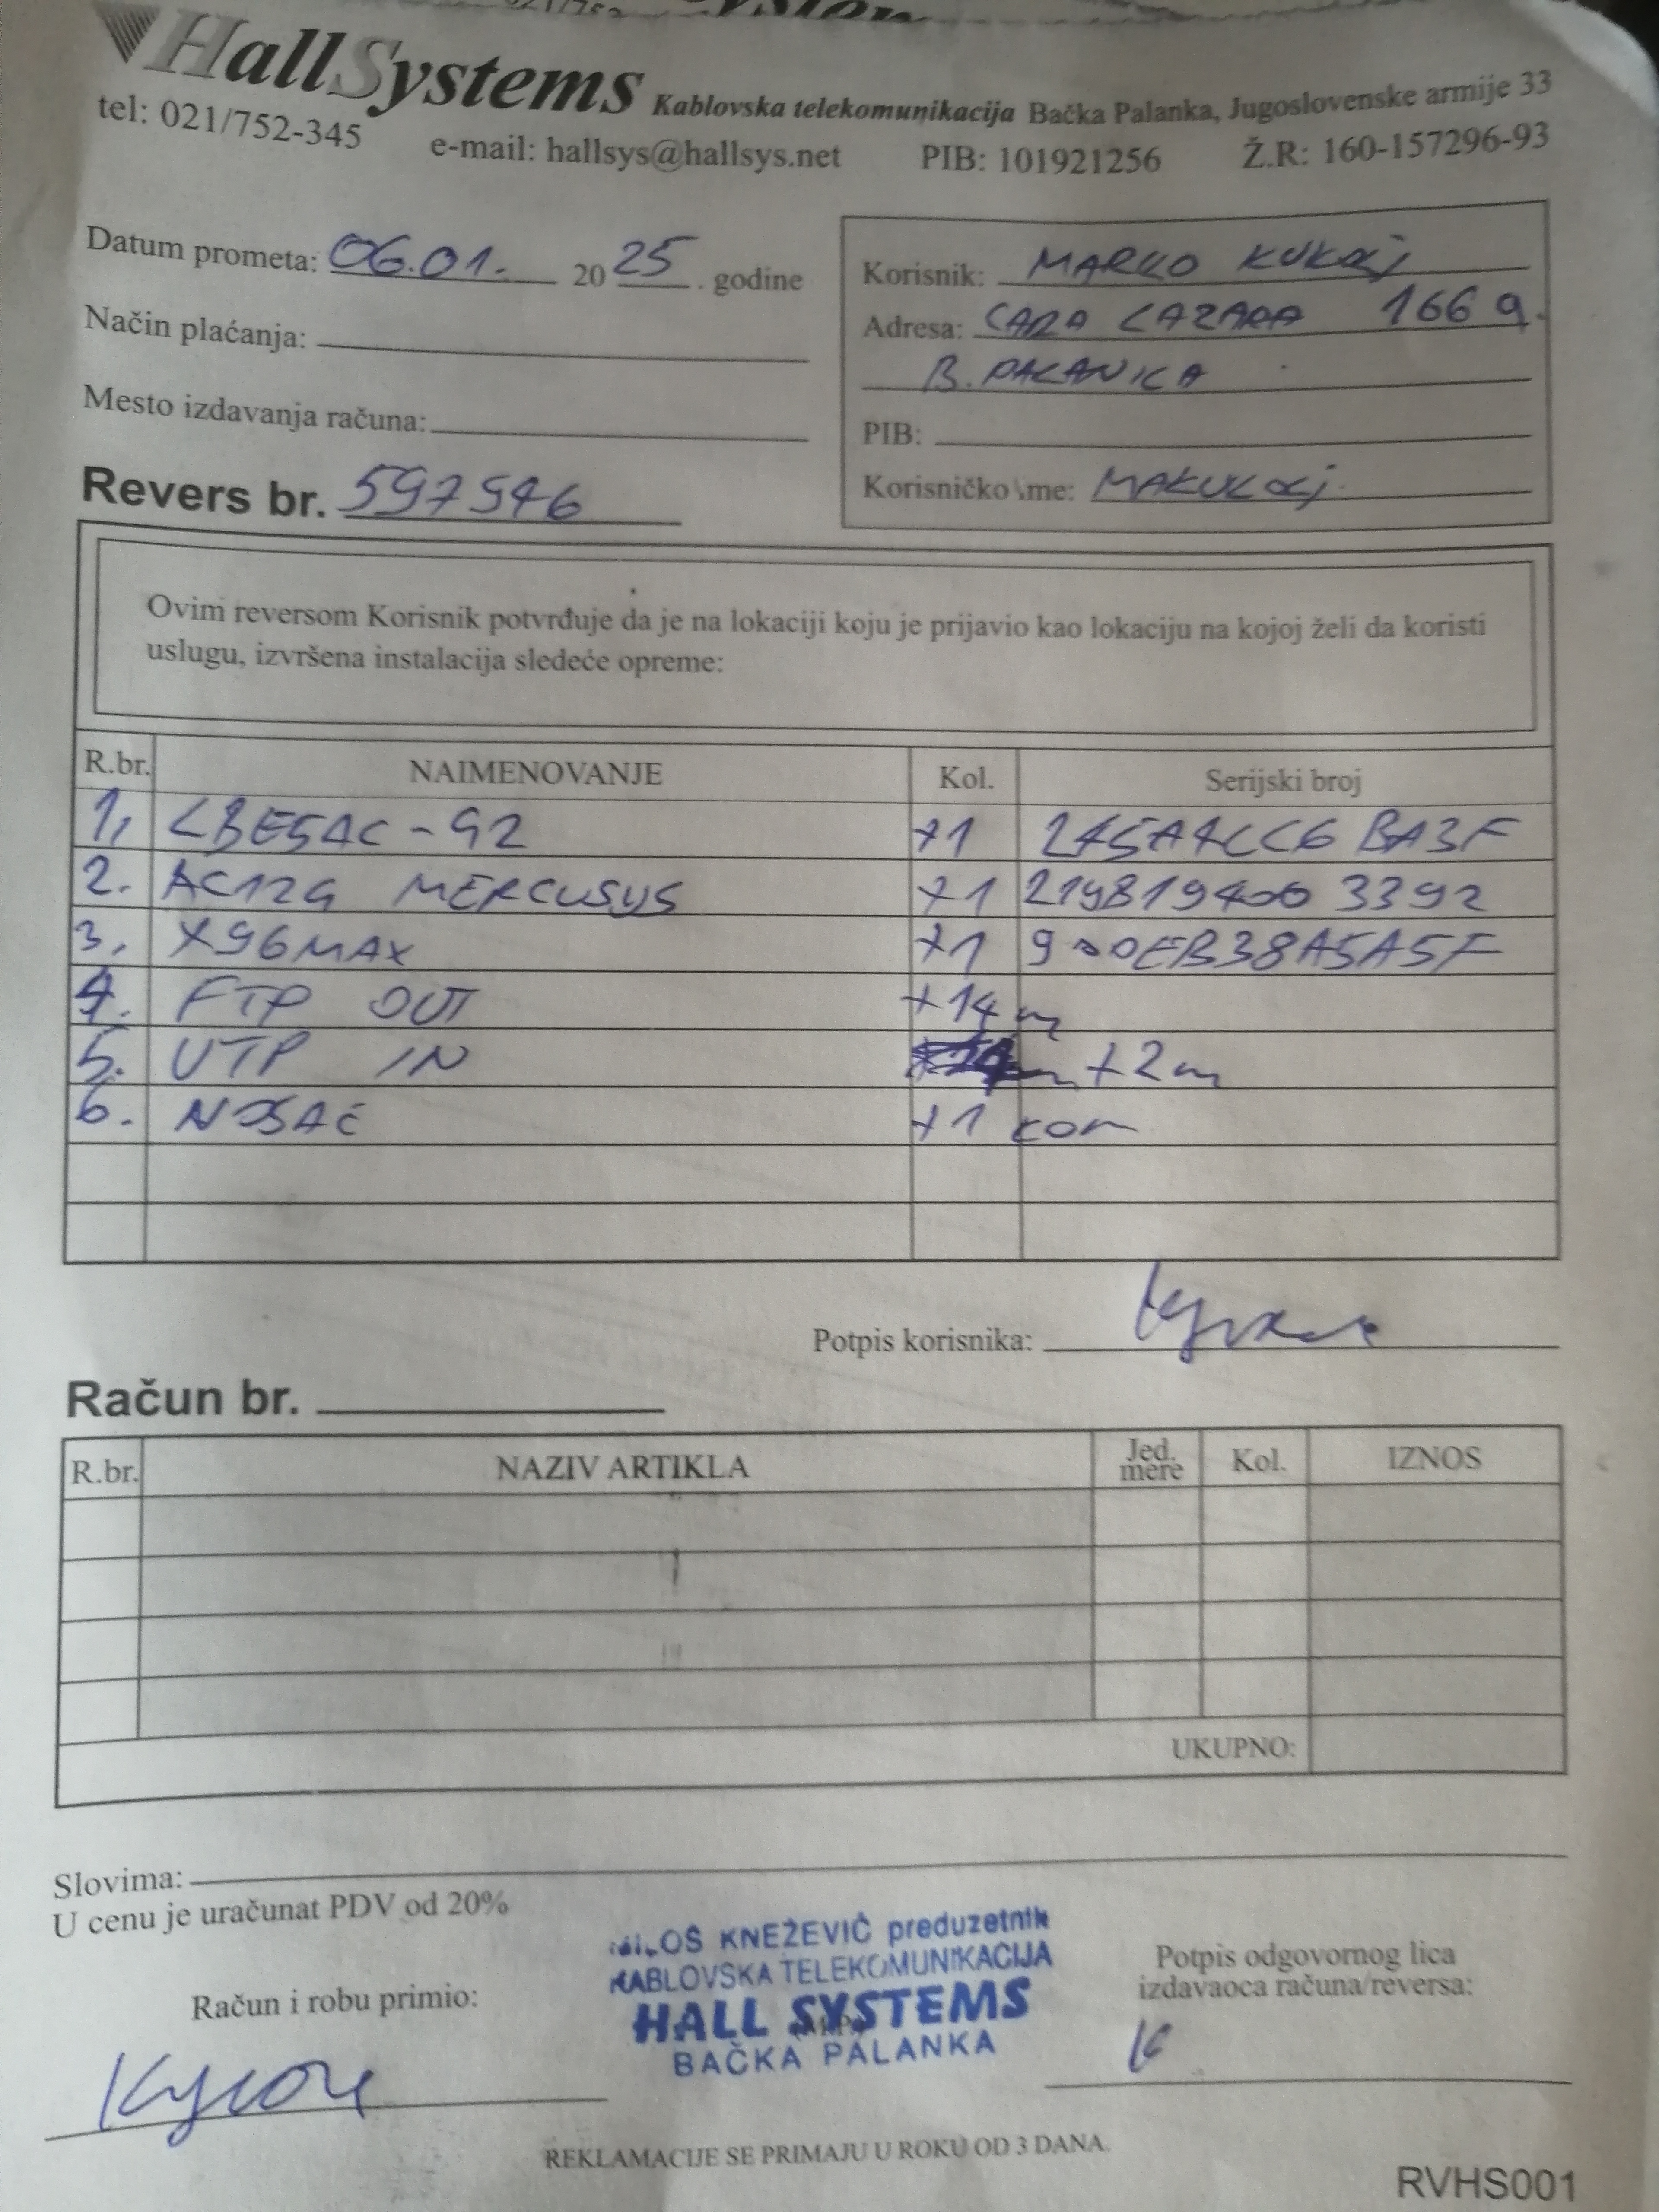 HallSystems Kablovska telekomunikacija Bačka Palanka, Jugoslovenske armije 33
tel: 021/752-345 e-mail: hallsys@hallsys.net PIB: 101921256 Ž.R: 160-157296-93
Datum prometa: 06.01. 20 25 . godine
Način plaćanja:
Mesto izdavanja računa:
Revers br. 597546
Korisnik: MARKO KUKOLJ
Adresa: CARA LAZARA 166 g.
B. PALANKA
PIB:
Korisničko ime: MAKUKOLJ
Ovim reversom Korisnik potvrđuje da je na lokaciji koju je prijavio kao lokaciju na kojoj želi da koristi
uslugu, izvršena instalacija sledeće opreme:
R.br. NAIMENOVANJE Kol. Serijski broj
1, LBE5AC-G2 +1
2. AC12G MERCUSYS +1 2198194003392
3, X96MAX +1 900EB38A5A5F
4. FTP OUT +14m
5. UTP IN +2m
6. NOSAČ +1 kom
Potpis korisnika:
Račun br.
R.br. NAZIV ARTIKLA Jed. mere Kol. IZNOS
UKUPNO:
Slovima:
U cenu je uračunat PDV od 20%
MILOŠ KNEŽEVIĆ preduzetnik
KABLOVSKA TELEKOMUNIKACIJA
HALL SYSTEMS
BAČKA PALANKA
Račun i robu primio:
Potpis odgovornog lica
izdavaoca računa/reversa:
REKLAMACIJE SE PRIMAJU U ROKU OD 3 DANA.
RVHS001